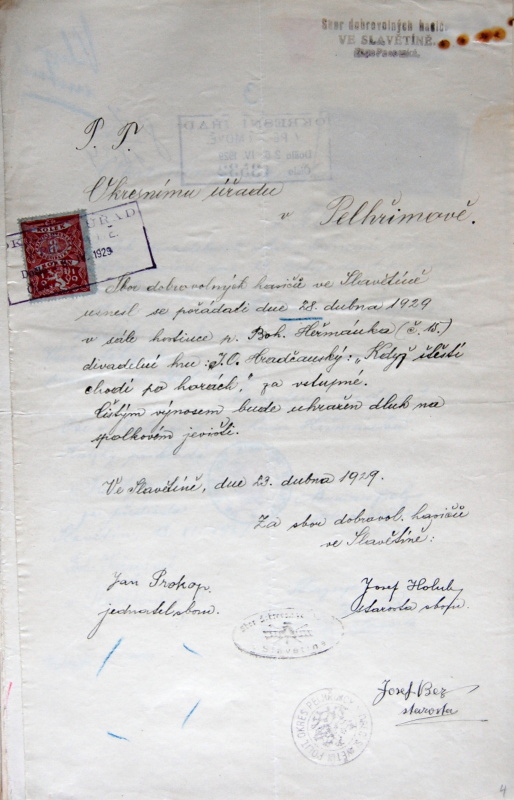 Sbor dobrovolných hasičů
VE SLAVĚTÍNĚ.
P. T.
Okresnímu úřadu
v Pelhřimově.
OKRESNÍ ÚŘAD
1929
Sbor dobrovolných hasičů ve Slavětíně
usnesl se pořádati dne 28. dubna 1929
v sále hostince p. Boh. Heřmánka (č. 15.)
divadelní hru: J.O. Hradčanský: „Když štěstí
chodí po horách," za vstupné.
Čistým výnosem bude uhražen dluh na
spolkovém jevišti.
Ve Slavětíně, dne 23. dubna 1929.
Za sbor dobrovol. hasičů
ve Slavětíně:
Jan Prokop,
jednatel sboru.
Josef Holub
starosta sboru.
Slavětína
Josef Bez
starosta
4